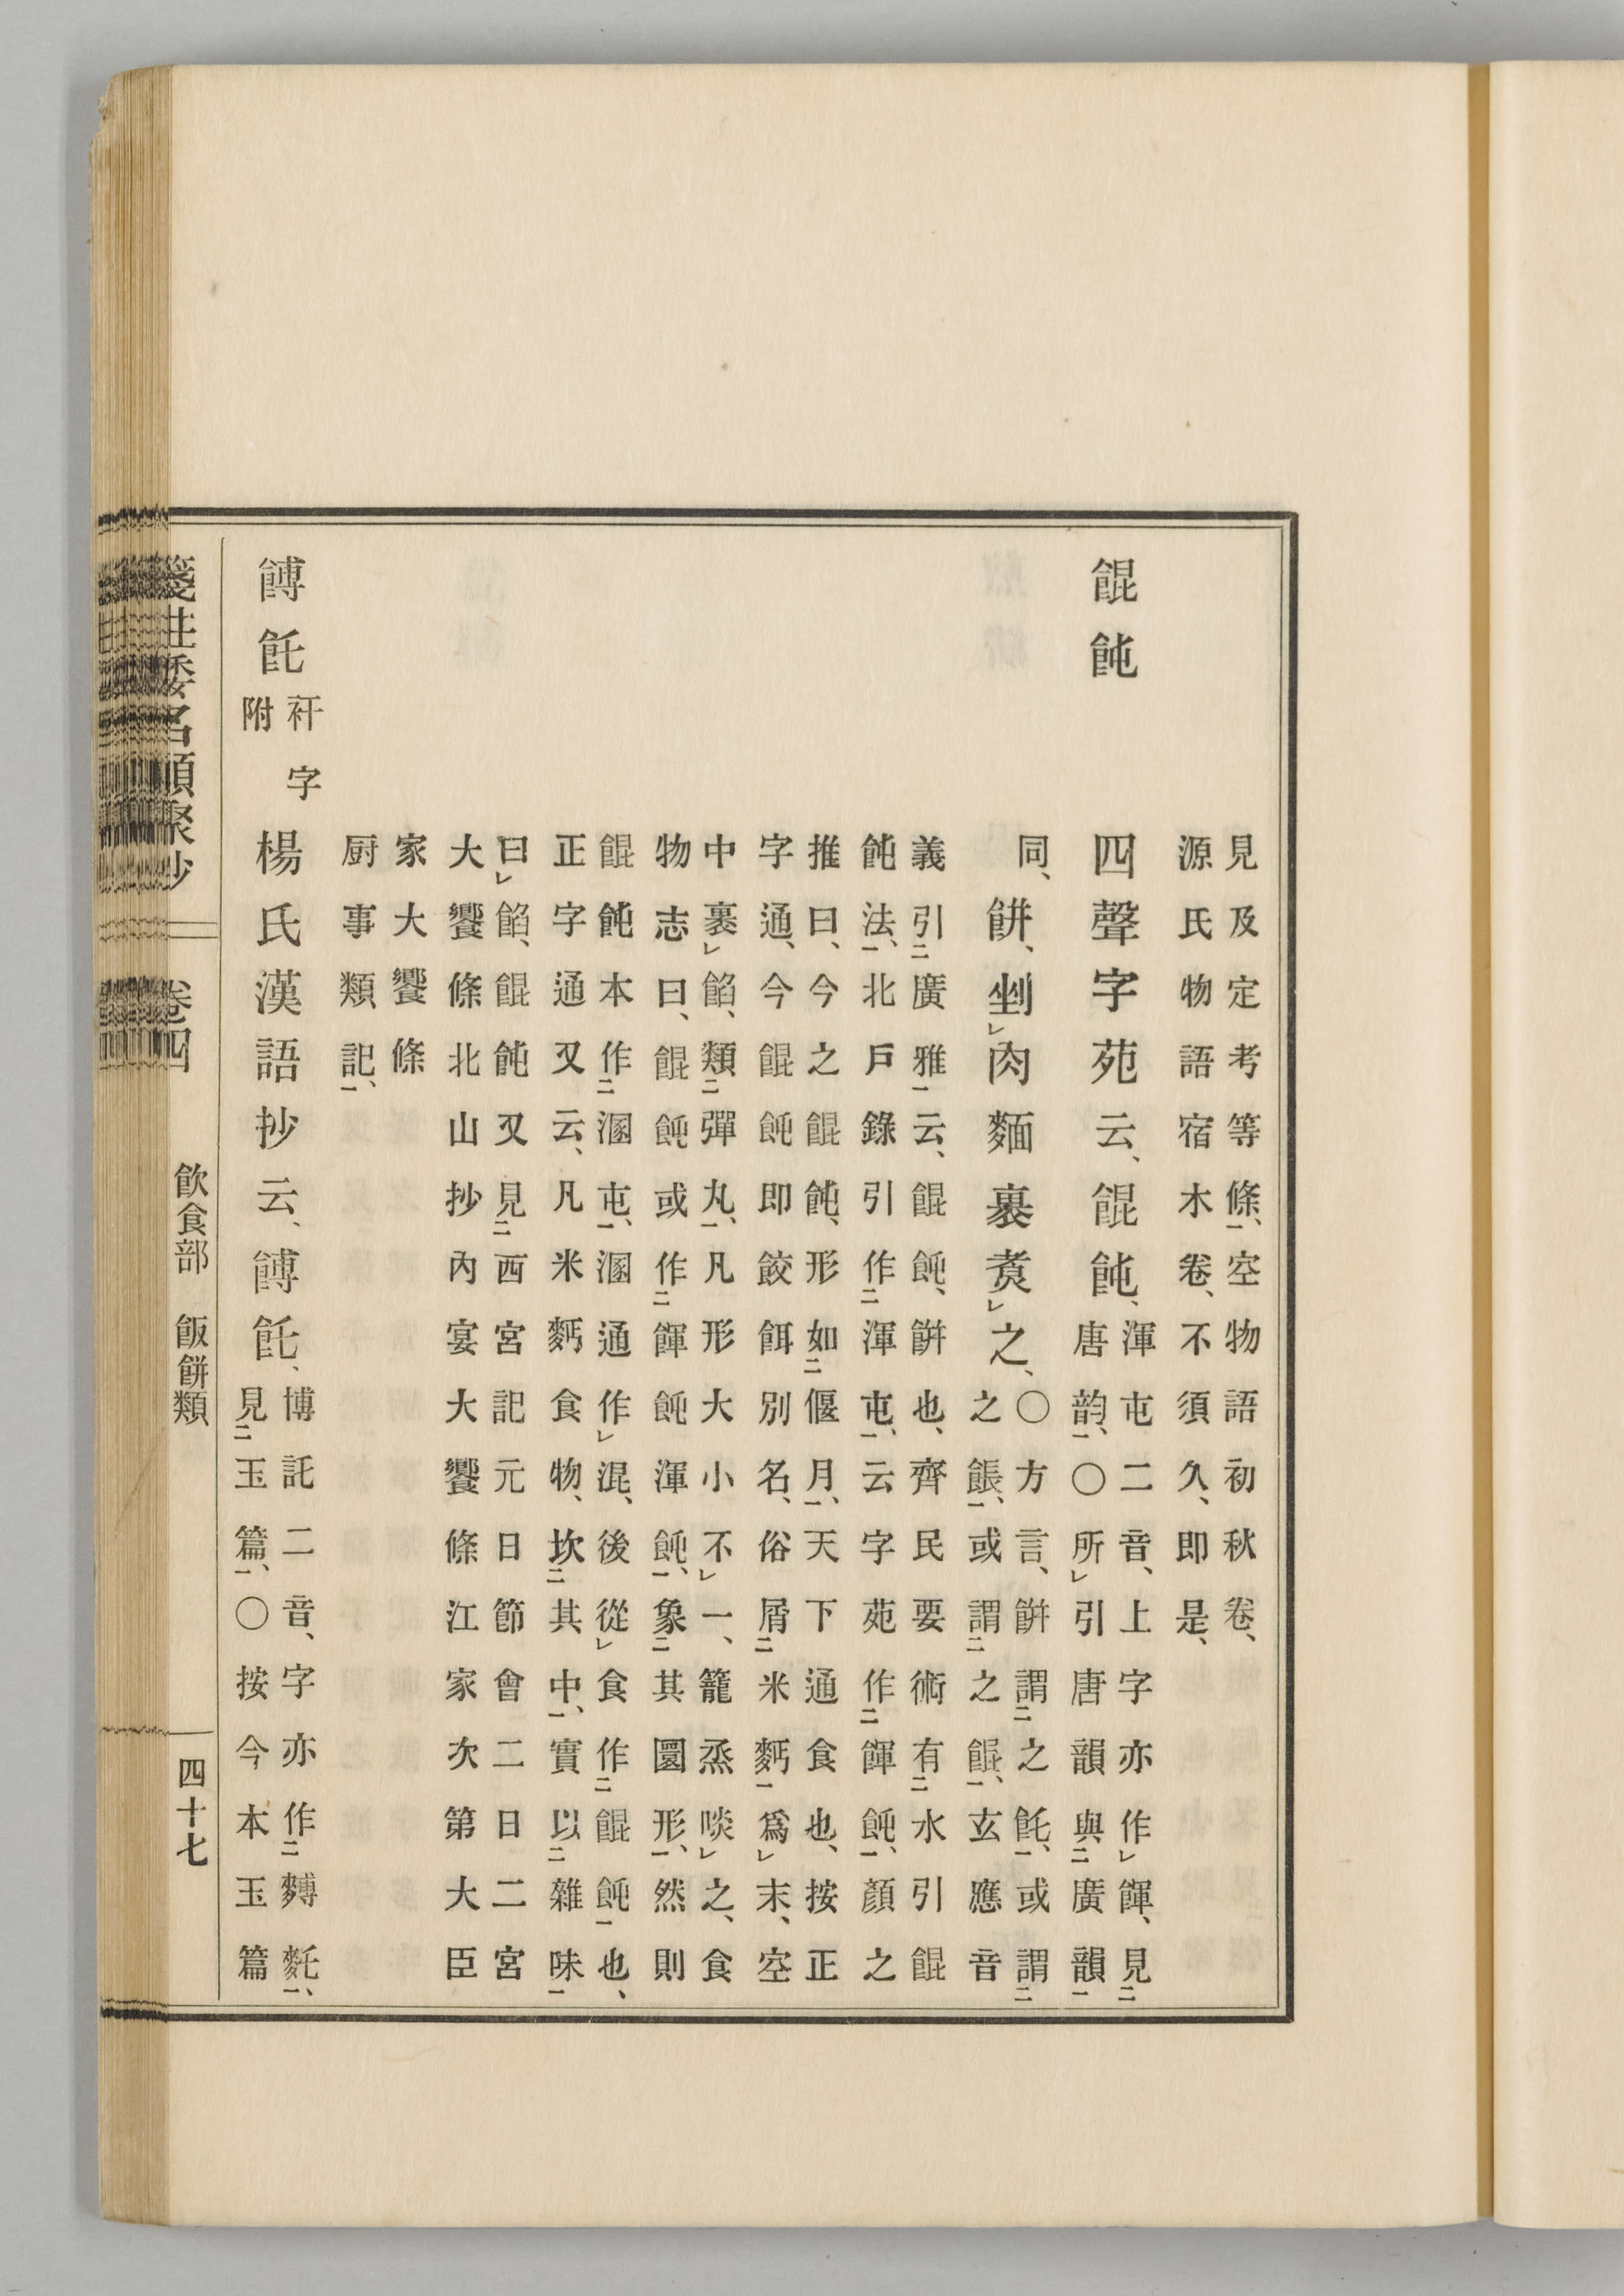 見及定考等條、空物語初秋卷、
源氏物語宿木卷、不須久、即是、
餛飩
四聲字苑云、餛飩、
渾屯二音、上字亦作餫、見
唐韵、〇所引唐韻與廣韻
同、
餠、剉肉麵裹煑之、
〇方言、餠謂之飥、或謂
之餦、或謂之餛、玄應音
義引廣雅云、餛飩、餠也、齊民要術有水引餛
飩法、北戶錄引作渾屯、云字苑作餫飩、顏之
推曰、今之餛飩、形如偃月、天下通食也、按正
字通、今餛飩即餃餌別名、俗屑米麪爲末、空
中裹餡、類彈丸、凡形大小不一、籠蒸啖之、食
物志曰、餛飩或作餫飩渾飩、象其圜形、然則
餛飩本作溷屯、溷通作混、後從食作餛飩也、
正字通又云、凡米麪食物、坎其中、實以雜味
曰餡、餛飩又見西宮記元日節會二日二宮
大饗條北山抄內宴大饗條江家次第大臣
家大饗條
厨事類記、
餺飥
衦字
附
楊氏漢語抄云、餺飥、
博託二音、字亦作䴺䴴、
見玉篇、〇按今本玉篇
箋注倭名類聚抄 卷四 飲食部 飯餅類 四十七